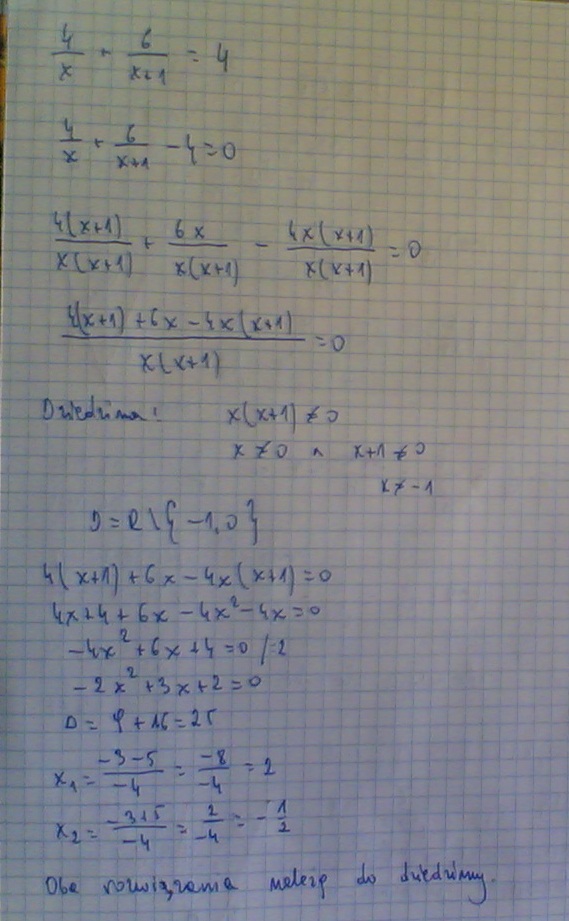 4/x + 6/(x+1) = 4
4/x + 6/(x+1) - 4 = 0
4(x+1)/x(x+1) + 6x/x(x+1) - 4x(x+1)/x(x+1) = 0
(4(x+1) + 6x - 4x(x+1))/x(x+1) = 0
Dziedzina: x(x+1) ≠ 0
x ≠ 0 ∧ x+1 ≠ 0
x ≠ -1
D = R \ { -1, 0 }
4(x+1) + 6x - 4x(x+1) = 0
4x + 4 + 6x - 4x² - 4x = 0
-4x² + 6x + 4 = 0 /:2
-2x² + 3x + 2 = 0
Δ = 9 + 16 = 25
x₁ = (-3-5)/-4 = -8/-4 = 2
x₂ = (-3+5)/-4 = 2/-4 = -1/2
Oba rozwiązania należą do dziedziny.